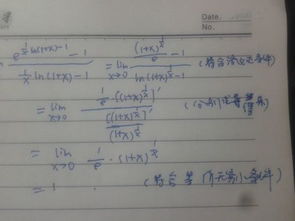 Date.
No.
e^{\frac{1}{x}\ln(1+x)-1} - 1 / \frac{1}{x}\ln(1+x)-1 = \lim_{x→0} \frac{\frac{(1+x)^{\frac{1}{x}}}{e} - 1}{\ln(1+x)^{\frac{1}{x}} - 1} (符合洛必达条件)
= \lim_{x→0} \frac{\frac{1}{e} \cdot ((1+x)^{\frac{1}{x}})'}{\frac{[(1+x)^{\frac{1}{x}}]'}{(1+x)^{\frac{1}{x}}}} (分别
= \lim_{x→0} \frac{1}{e} \cdot (1+x)^{\frac{1}{x}}
= 1 (符合等价无穷小条件)